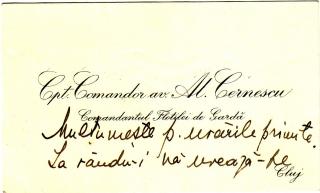 Cpt. Comandor av. Al. Cernescu
Comandantul Flotilei de Gardă
Mulțumește p. urările primite.
La rându-i vă urează-he
Cluj